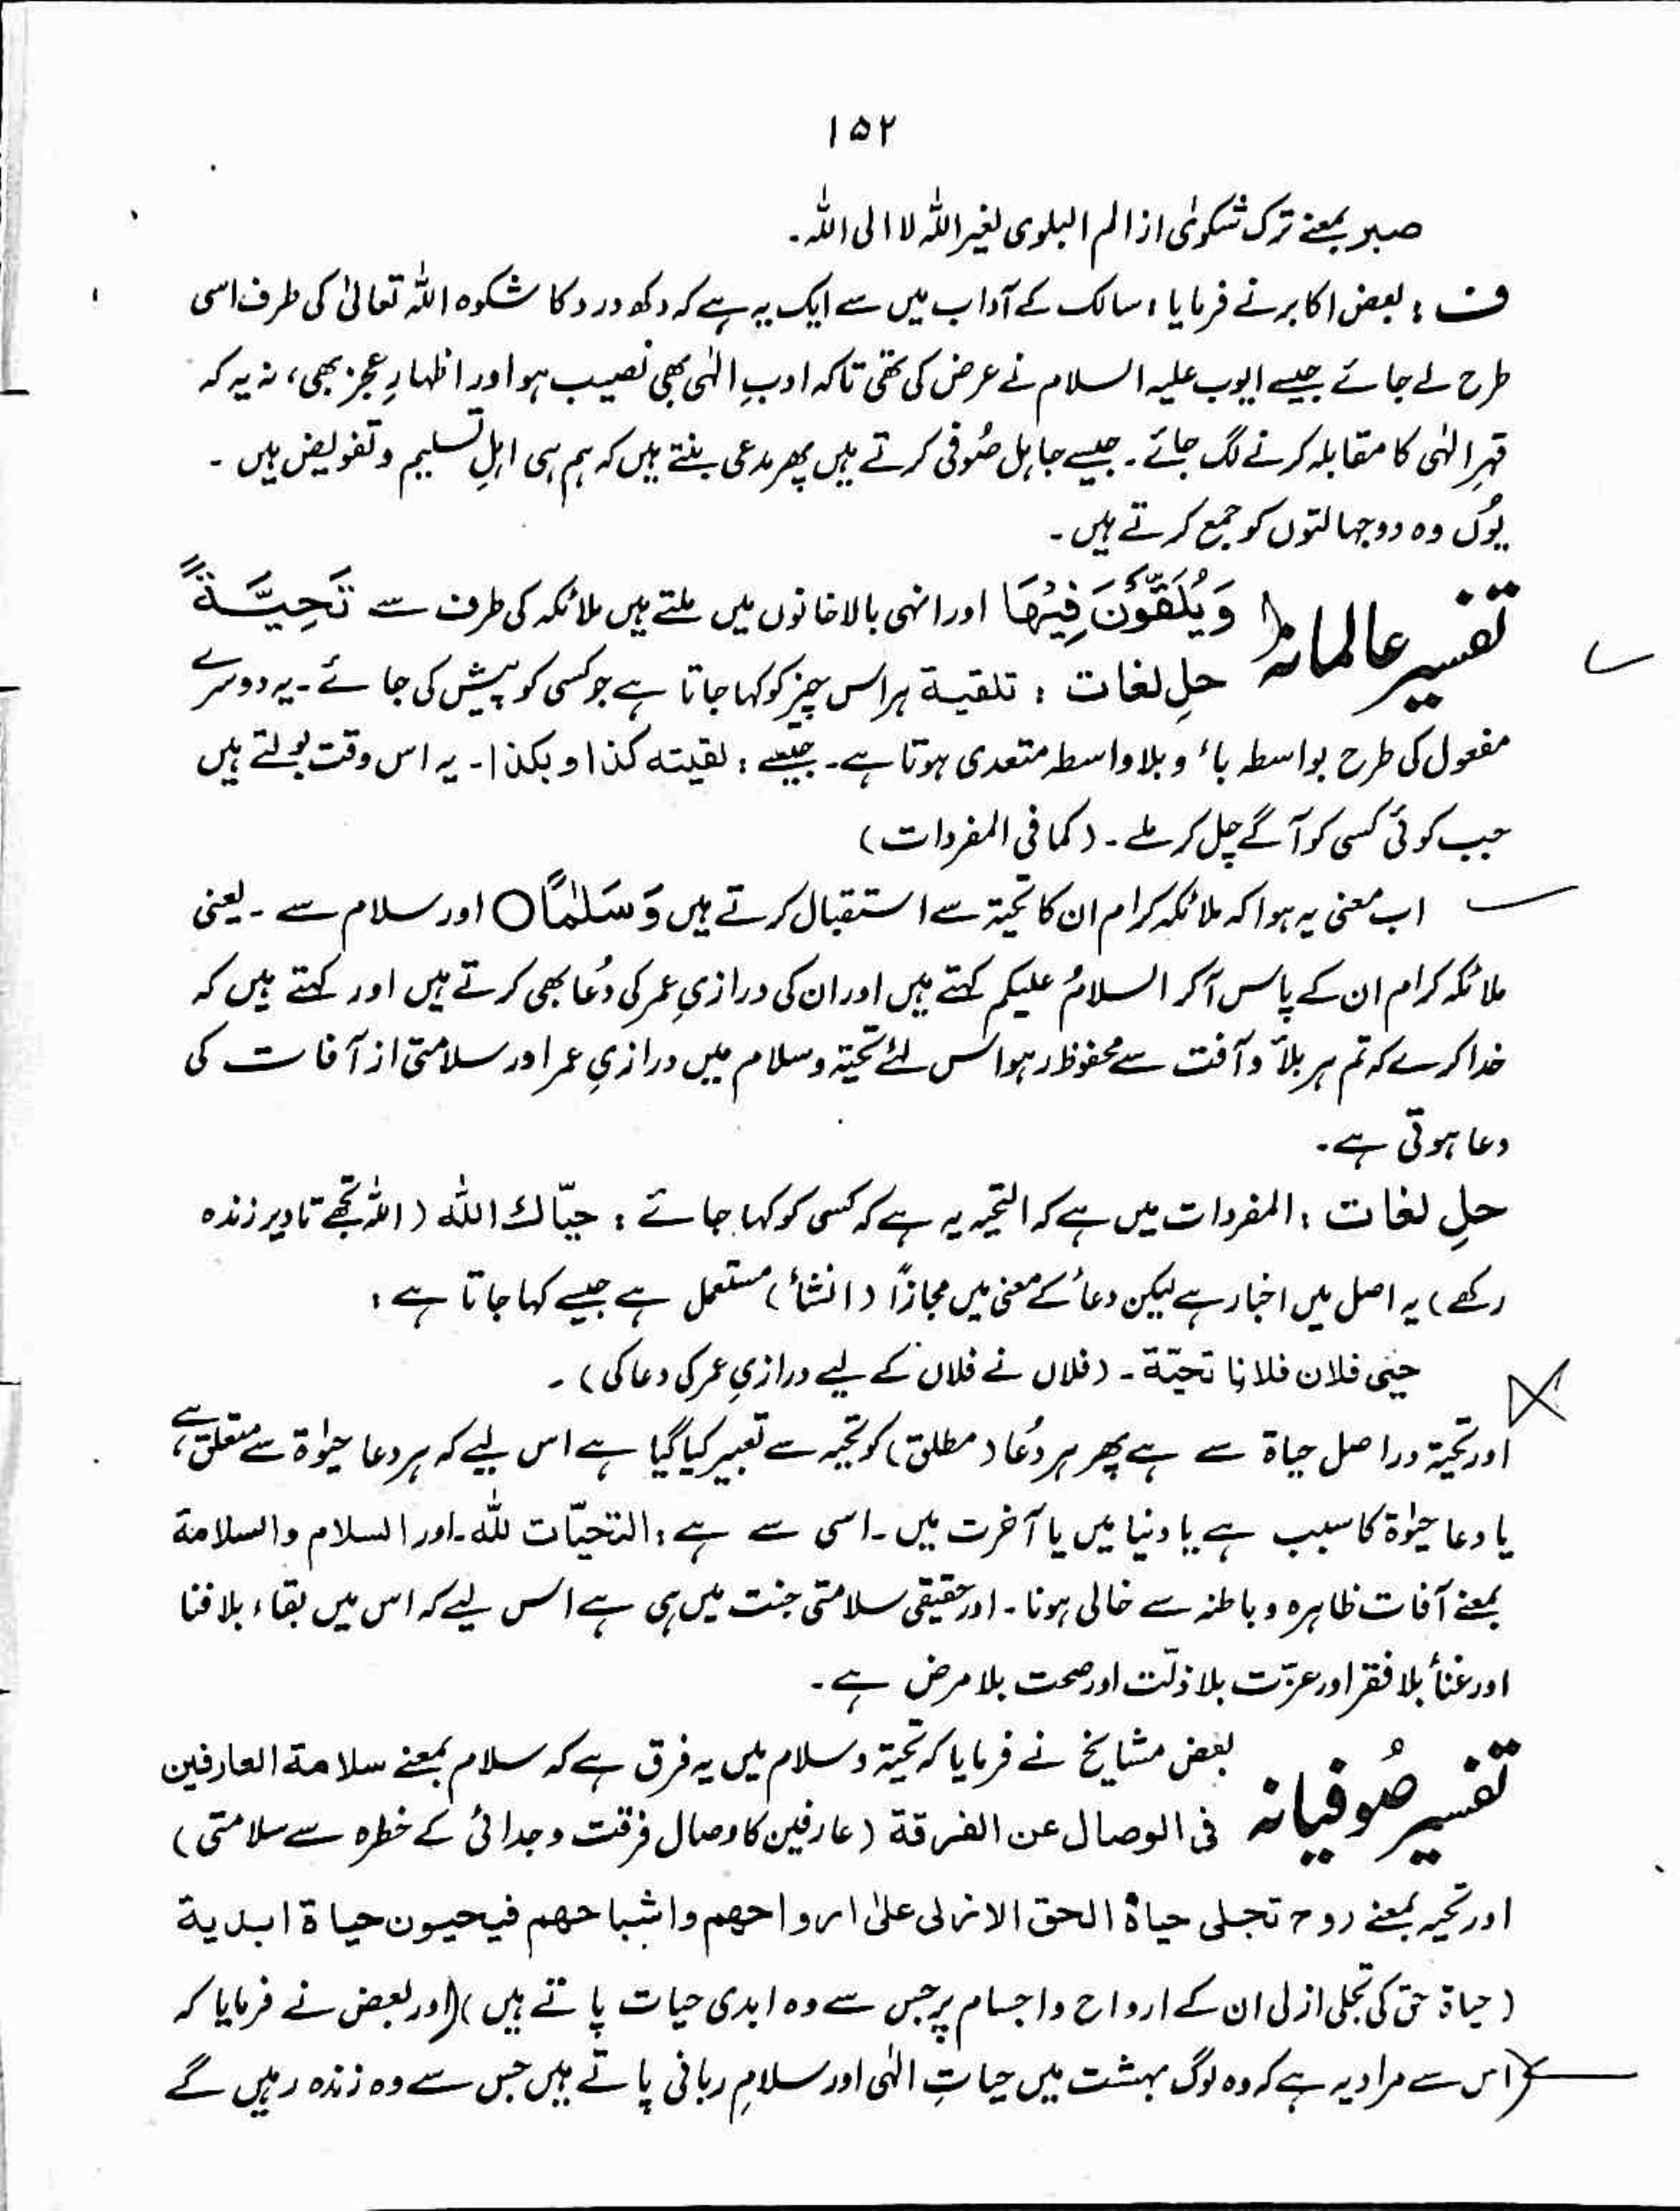 ۱۵۲
صبر بمعنے ترک شکوٰی از الم البلوی لغیر اللہ لا الی اللہ۔
ف : بعض اکابر نے فرمایا ، سالک کے آداب میں سے ایک یہ ہے کہ دکھ درد کا شکوہ اللہ تعالیٰ کی طرف اسی
طرح لے جائے جیسے ایوب علیہ السلام نے عرض کی تھی تاکہ ادبِ الٰہی بھی نصیب ہو اور اظہارِ عجز بھی ، نہ یہ کہ
قہرِ الٰہی کا مقابلہ کرنے لگ جائے۔ جیسے جاہل صُوفی کرتے ہیں پھر مدعی بنتے ہیں کہ ہم ہی اہلِ تسلیم و تفویض ہیں ۔
یُوں وہ دو جہالتوں کو جمع کرتے ہیں۔
تفسیر عالمانہ وَيُلَقَّوْنَ فِيْهَا اور انہی بالا خانوں میں ملتے ہیں ملائکہ کی طرف سے تَحِيَّةً
حلِ لغات : تلقیۃ ہر اس چیز کو کہا جاتا ہے جو کسی کو پیش کی جائے۔ یہ دوسرے
مفعول کی طرح بواسطہ باء و بلا واسطہ متعدی ہوتا ہے۔ جیسے : لقیتہ کذا و بکذا۔ یہ اس وقت بولتے ہیں
جب کوئی کسی کو آگے چل کر ملے ۔ (کما فی المفردات)
اب معنی یہ ہوا کہ ملائکہ کرام ان کا تحیۃ سے استقبال کرتے ہیں وَسَلٰمًا ○ اور سلام سے ۔ یعنی
ملائکہ کرام ان کے پاس آکر السلامُ علیکم کہتے ہیں اور ان کی درازیِ عمر کی دُعا بھی کرتے ہیں اور کہتے ہیں کہ
خدا کرے کہ تم ہر بلاَ و آفت سے محفوظ رہو اس لئے تحیۃ و سلام میں درازیِ عمر اور سلامتی از آفات کی
دعا ہوتی ہے۔
حلِ لغات : المفردات میں ہے کہ التحیہ یہ ہے کہ کسی کو کہا جائے : حیّاك الله (اللہ تجھے تا دیر زندہ
رکھے) یہ اصل میں اخبار ہے لیکن دعاُ کے معنی میں مجازًا (انشاً) مستعمل ہے جیسے کہا جاتا ہے :
حیّٰی فلان فلانا تحیّة ۔ (فلاں نے فلاں کے لیے درازیِ عمر کی دعا کی) ۔
اور تحیۃ دراصل حیاة سے ہے پھر ہر دُعا (مطلق) کو تحیہ سے تعبیر کیا گیا ہے اس لیے کہ ہر دعا حیٰوۃ سے متعلق ہے ،
یا دعا حیٰوۃ کا سبب ہے یا دنیا میں یا آخرت میں ۔ اسی سے ہے : التحیّات للّٰہ ۔ اور السلام والسلامة
بمعنے آفات ظاہرہ و باطنہ سے خالی ہونا ۔ اور حقیقی سلامتی جنت میں ہی ہے اس لیے کہ اس میں بقاء بلا فنا
اور غنأ بلا فقر اور عزّت بلا ذلّت اور صحت بلا مرض ہے ۔
تفسیر صُوفیانہ بعض مشایخ نے فرمایا کہ تحیۃ و سلام میں یہ فرق ہے کہ سلام بمعنے سلامة العارفین
فی الوصال عن الفرقة (عارفین کا وصال فرقت و جدائی کے خطرہ سے سلامتی)
اور تحیہ بمعنے روح تجلی حیاة الحق الازلی علیٰ ارواحھم واشباحھم فیحیون حیاة ابدیة
(حیاة حق کی تجلی ازلی ان کے ارواح و اجسام پر جس سے وہ ابدی حیات پاتے ہیں) اور بعض نے فرمایا کہ
اس سے مراد یہ ہے کہ وہ لوگ بہشت میں حیاتِ الٰہی اور سلامِ ربانی پاتے ہیں جس سے وہ زندہ رہیں گے